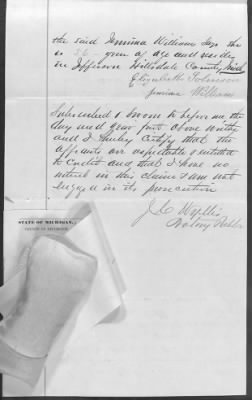 the said Jemima Williams Says she
is 56 years of age and resides
in Jefferson Hillsdale County Mich
Elizabeth Johnson
Jemima Williams
Subscribed & Sworn to before me the
day and year first above written
and I hereby certify that the
affiants are respectable & entitled
to Credit and that I have no
interest in this claim & am not
engaged in its prosecution
J. C. Wyllis
Notary Public
STATE OF MICHIGAN,
COUNTY OF